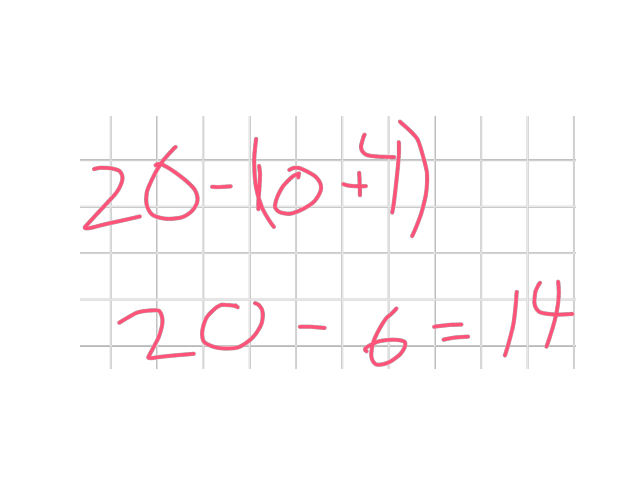 20-(10+4)
20-6=14